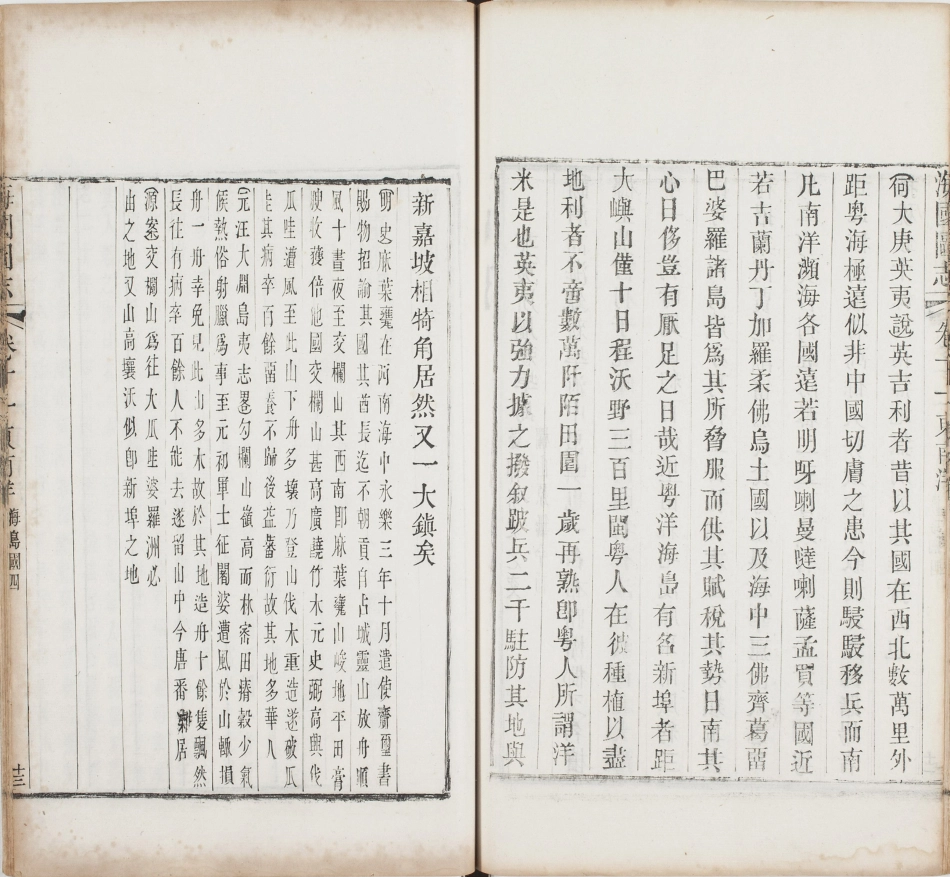 何大庚英夷說英吉利者昔以其國在西北數萬里外
距粵海極遠似非中國切膚之患今則駸駸移兵而南
凡南洋瀕海各國遠若明呀喇曼噠喇薩孟買等國近
若吉蘭丹丁加羅柔佛烏土國以及海中三佛齊葛留
巴婆羅諸島皆爲其所脅服而供其賦稅其勢日南其
心日侈豈有厭足之日哉近粵洋海島有名新埠者距
大嶼山僅十日程沃野三百里閩粵人在彼種植以盡
地利者不啻數萬阡陌田園一歲再熟卽粵人所謂洋
米是也英夷以強力據之撥叙跛兵二千駐防其地與
新嘉坡相犄角居然又一大鎭矣
明史麻葉甕在西南海中永樂三年十月遣使齎璽書
賜物招諭其國其酋長迄不朝貢自占城靈山放舟順
風十晝夜至交欄山其西南卽麻葉甕山峻地平田膏
腴收穫倍他國交欄山甚高廣饒竹木元史弼高興伐
瓜哇遭風至此山下舟多壞乃登山伐木重造遂破瓜
哇其病卒百餘留養不歸後益蕃衍故其地多華人
元汪大淵島夷志畧勾欄山嶺高而林密田瘠穀少氣
候熱俗射獵爲事至元初軍士征闍婆遭風於山輒損
舟一舟幸免見此山多木故於其地造舟十餘隻飄然
長往有病卒百餘人不能去遂留山中今唐番雜居
源案交欄山爲往大瓜哇婆羅洲必
由之地又山高壤沃似卽新埠之地
海島國四
十三